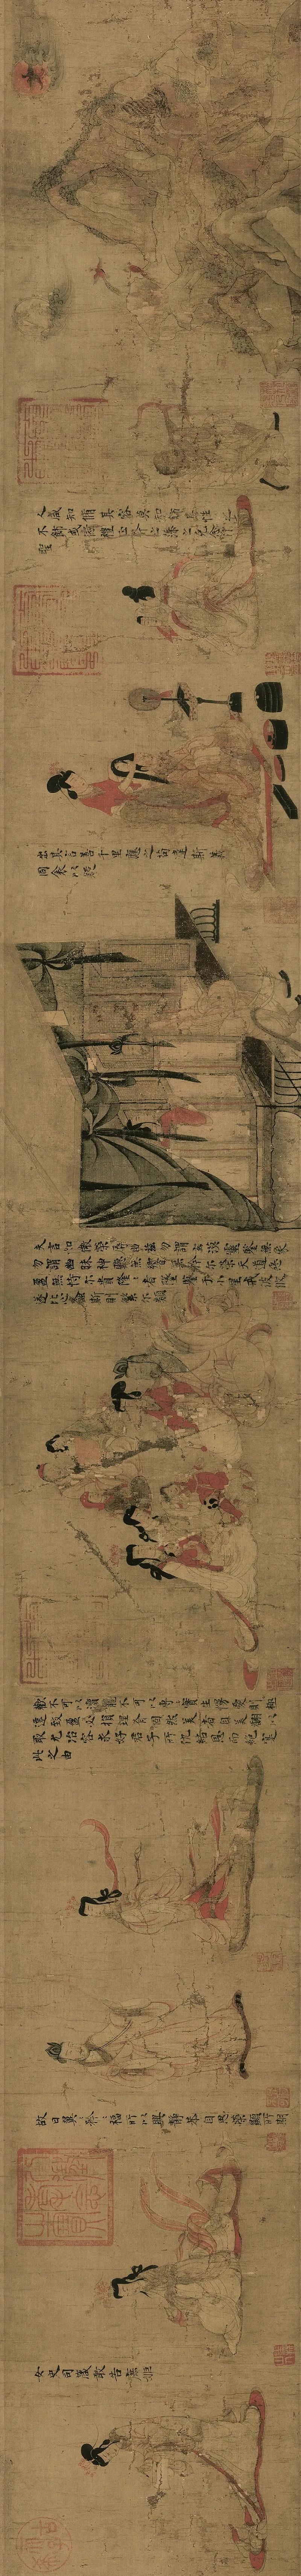 人咸知脩其容莫知飾其性性之
不飾或愆禮正斧之藻之克念作
聖
出其言善千里應之苟違斯義
同衾以疑
夫言如微榮辱由茲勿謂玄漠靈鑒無象
勿謂幽昧神聽無響無矜尔榮天道惡
盈無恃尔貴隆〻者墜鑒于小星戒彼攸
遂比心螽斯則繁尔類
歡不可以黷寵不可以專〻實生慢愛則極
遷致盈必損理有固然美者自美翩以
取尤冶容求好君子所讎結恩而絕寔
此之由
故曰翼〻矜〻福所以興靖恭自思榮顯所期
女史司箴敢告庶姬